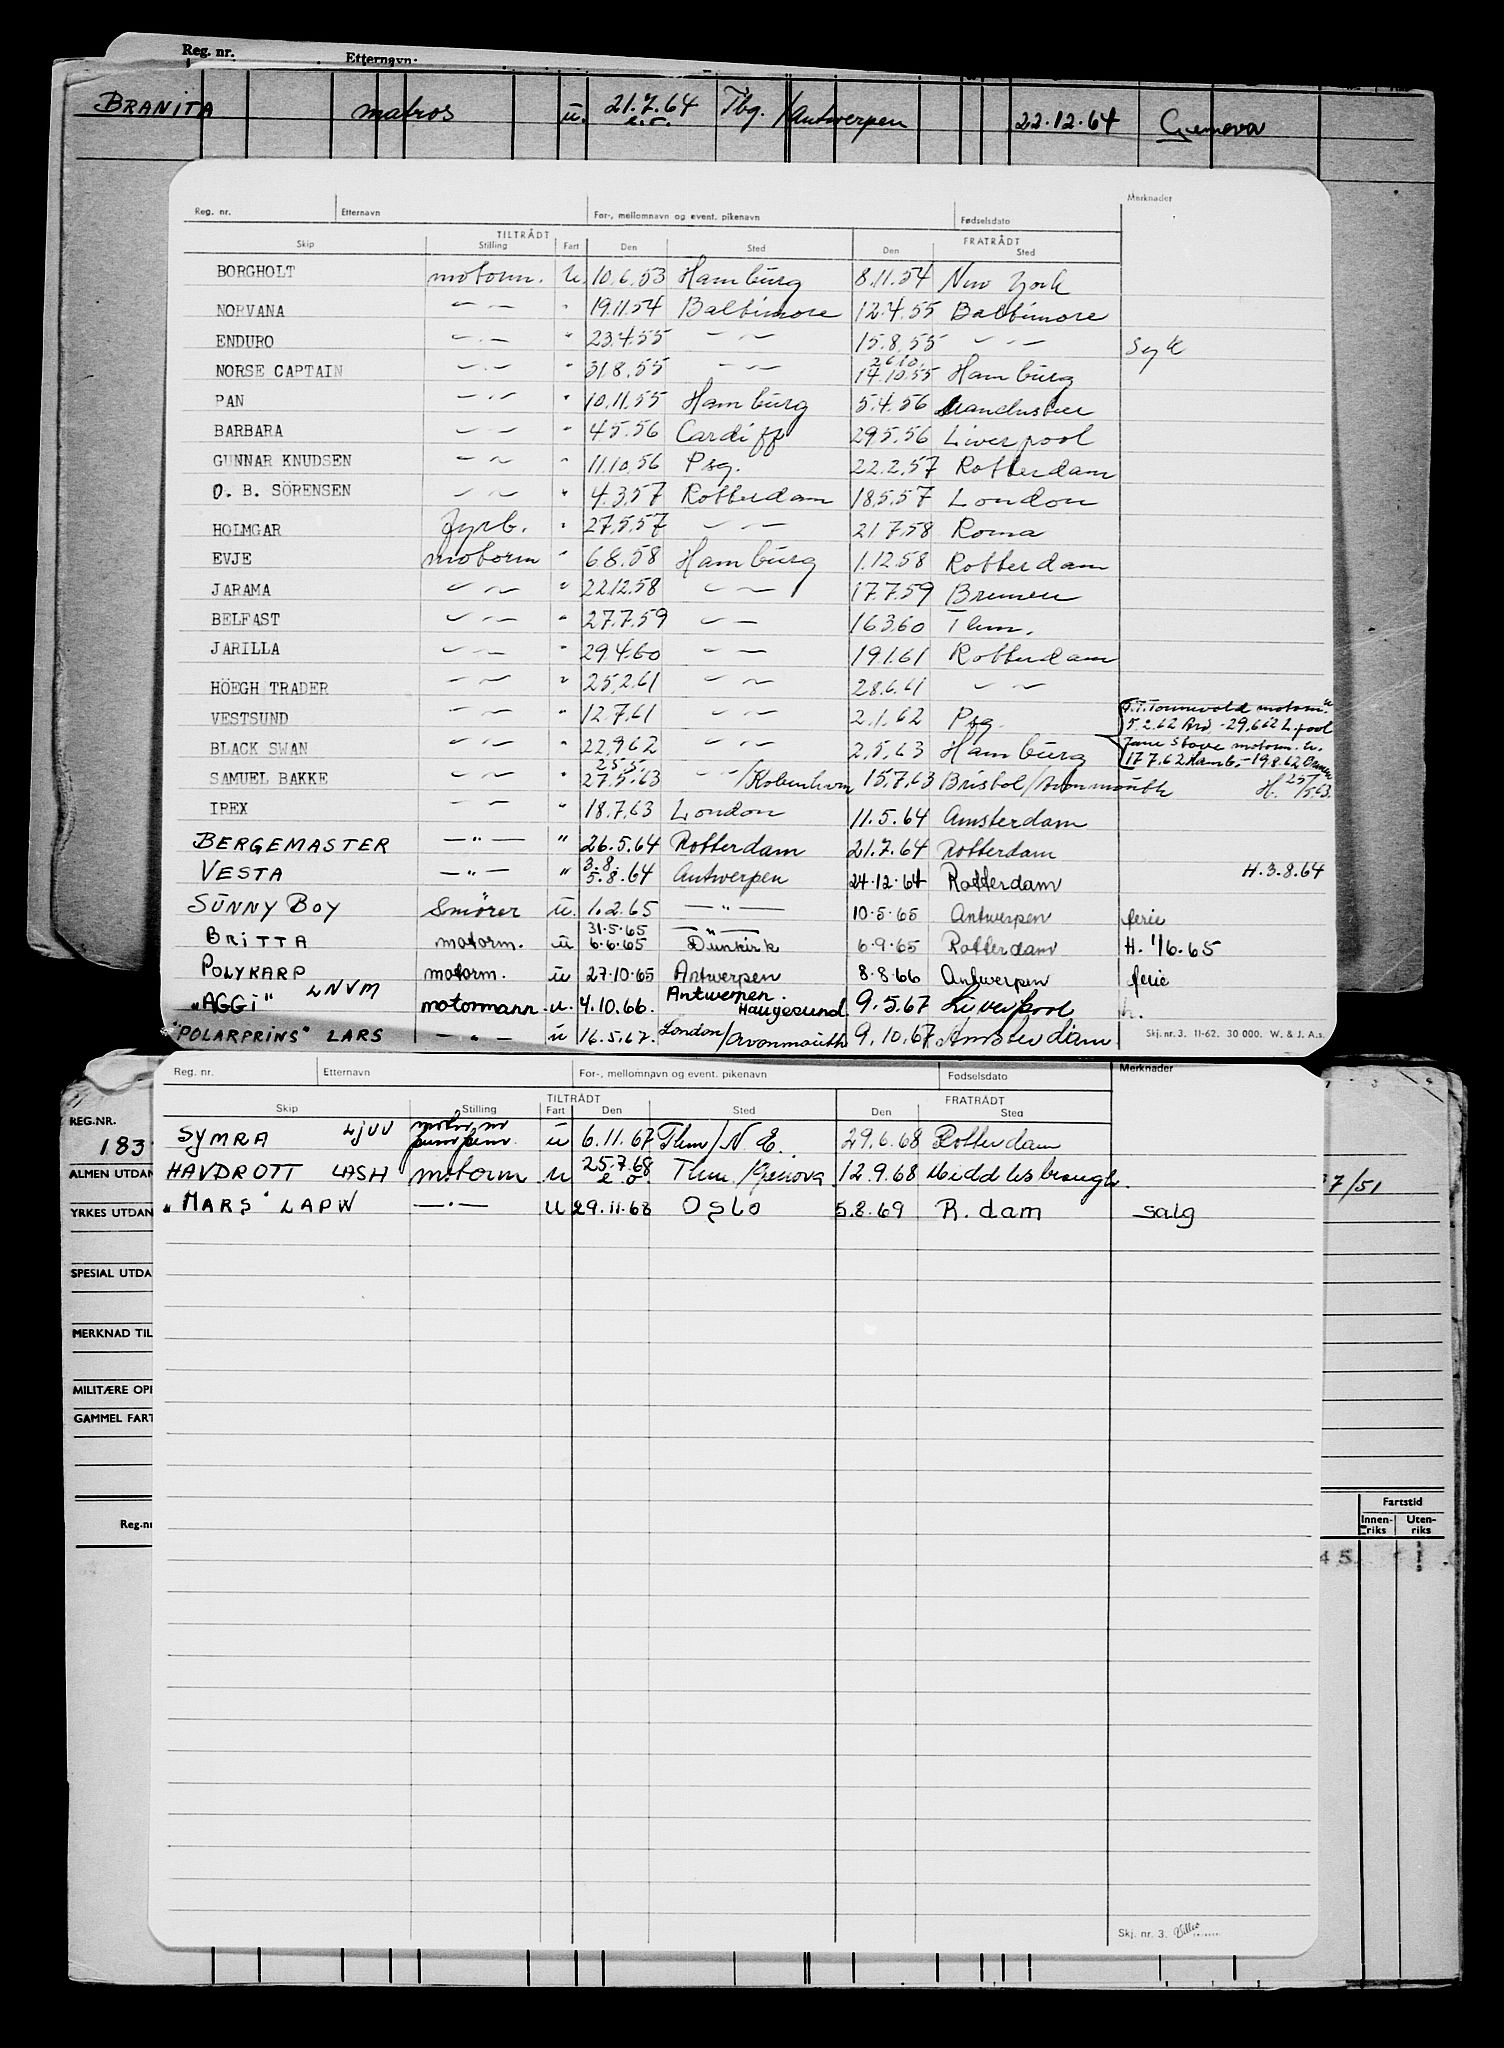 Reg. nr. Etternavn:
BRANITA matros u. 21.7.64 e.r. Tbg. /Antwerpen 22.12.64 Genova
Reg. nr. Etternavn For-, mellomnavn og event. pikenavn Fødselsdato Merknader
TILTRÅDT FRATRÅDT
Skip Stilling Fart Den Sted Den Sted
BORGHOLT motorm. u. 10.6.53 Hamburg 8.11.54 New York
NORVANA — " — " 19.11.54 Baltimore 12.4.55 Baltimore
ENDURO — " — " 23.4.55 — " — 15.8.55 — " — Syk
26.10.
NORSE CAPTAIN — " — " 31.8.55 — " — 14.10.55 Hamburg
PAN — " — " 10.11.55 Hamburg 5.4.56 Manchester
BARBARA — " — " 4.5.56 Cardiff 29.5.56 Liverpool
GUNNAR KNUDSEN — " — " 11.10.56 Psg. 22.2.57 Rotterdam
O. B. SÖRENSEN — " — " 4.3.57 Rotterdam 18.5.57 London
HOLMGAR fyrb. " 27.5.57 — " — 21.7.58 Roma
EVJE motorm " 6.8.58 Hamburg 1.12.58 Rotterdam
JARAMA — " — " 22.12.58 — " — 17.7.59 Bremen
BELFAST — " — " 27.7.59 — " — 16.3.60 Tbm.
JARILLA — " — " 29.4.60 — " — 19.1.61 Rotterdam
HÖEGH TRADER — " — " 25.2.61 — " — 28.6.61 — " —
VESTSUND — " — " 12.7.61 — " — 2.1.62 Psg. motorm. u
5.2.62 - 29.6.62 L.pool
BLACK SWAN — " — " 22.9.62 — " — 2.5.63 Hamburg Jane Stove motorm. u.
17.7.62 Hamb. - 19.8.62
25.5.
SAMUEL BAKKE — " — " 27.5.63 — " — /København 15.7.63 Bristol/Avonmouth H. 25/5.63.
IREX — " — " 18.7.63 London 11.5.64 Amsterdam
BERGEMASTER — " — " 26.5.64 Rotterdam 21.7.64 Rotterdam
3.8.
VESTA — " — " 5.8.64 Antwerpen 24.12.64 Rotterdam H. 3.8.64
SUNNY BOY Smører u. 1.2.65 — " — 10.5.65 Antwerpen ferie
31.5.65 — " —
BRITTA motorm. u 6.6.65 Dunkirk 6.9.65 Rotterdam H. 1/6.65
POLYKARP motorm. u 27.10.65 Antwerpen 8.8.66 Antwerpen ferie
"AGGI" LNVM motormann u. 4.10.66. Antwerpen. Haugesund. 9.5.67 Liverpool h.
"POLARPRINS" LARS — " — u 16.5.67. London/Avonmouth 9.10.67 Amsterdam
Skj. nr. 3. 11-62. 30 000. W. & J. A.s.
Reg. nr. Etternavn For-, mellomnavn og event. pikenavn Fødselsdato Merknader
TILTRÅDT FRATRÅDT
Skip Stilling Fart Den Sted Den Sted
SYMRA LJUU motorm pumpem. u 6.11.67 Tbm/N.E. 29.6.68 Rotterdam
HAVDROTT LASH motorm u 25.7.68 e.o. Tbm/Genova 12.9.68 Middlesbrough.
"MARS" LAPW — " — u 29.11.68 Oslo 5.8.69 R.dam salg
Skj. nr. 3.
REG.NR.
183
ALMEN UTDAN
YRKES UTDAN
SPESIAL UTDA
MERKNAD TIL
MILITÆRE OPI
GAMMEL FART
Reg.nr
7/51
Fartstid
Innen-riks Uten-riks
45